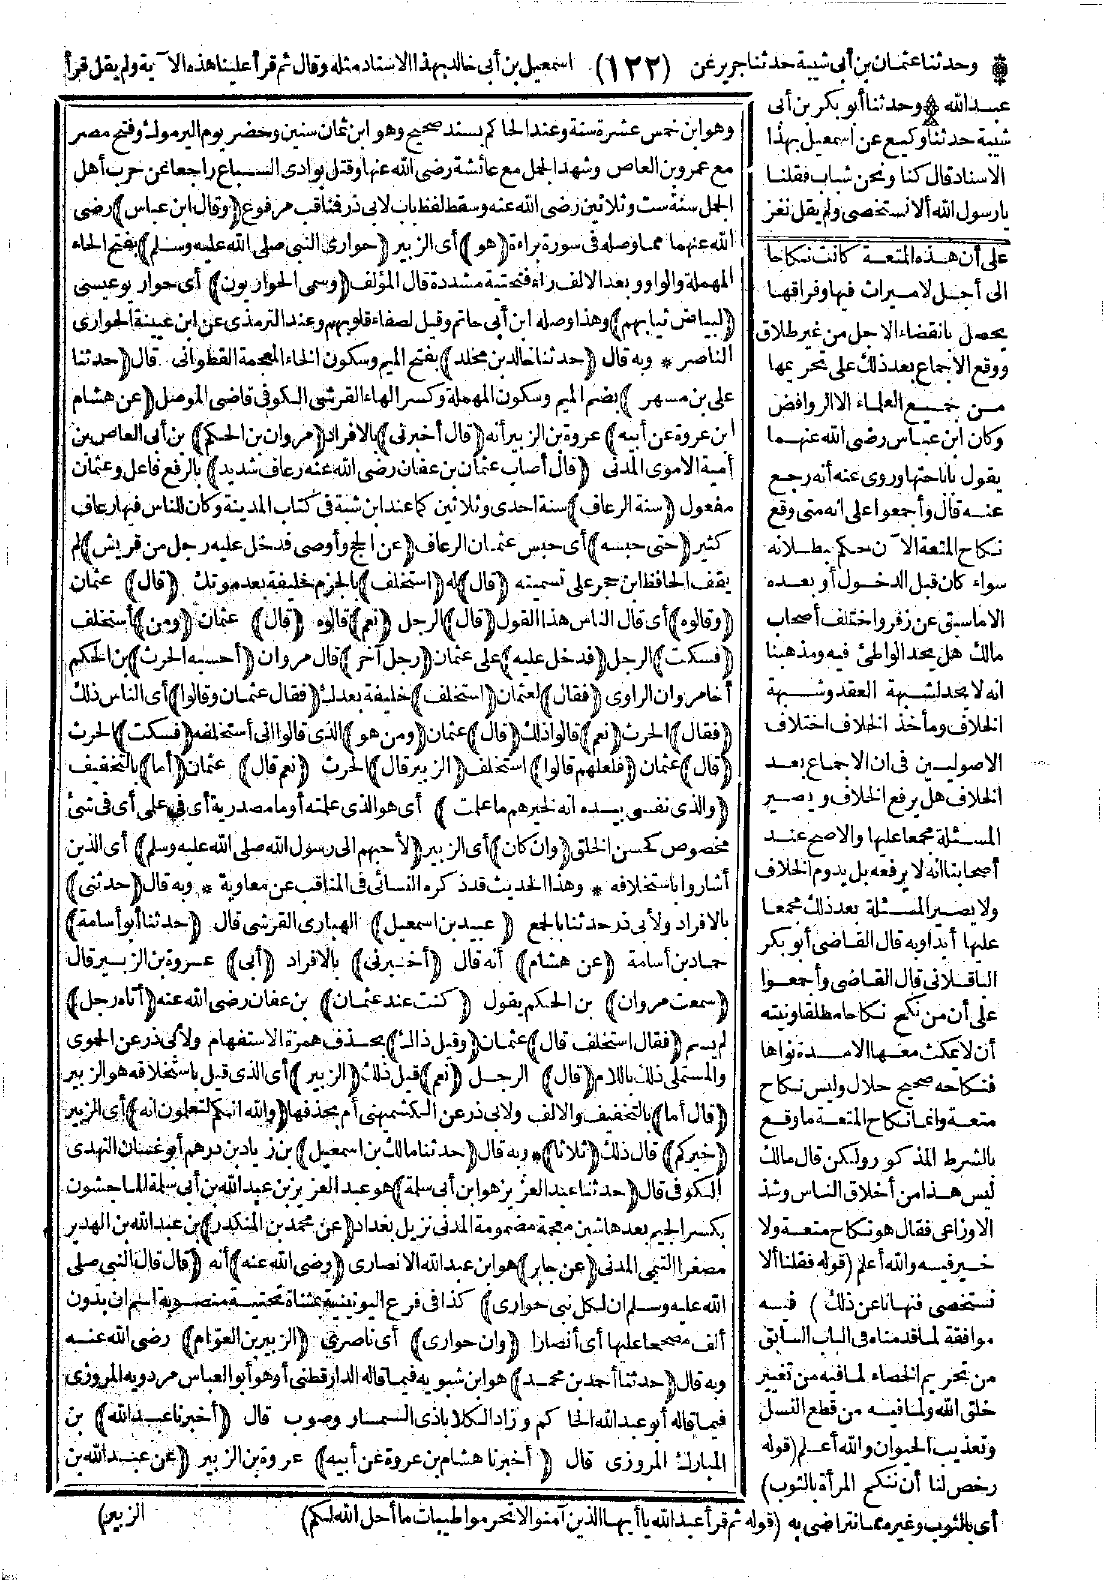 ۞ وحدثنا عثمان بن أبي شيبة حدثنا جرير عن (١٢٢) اسمعيل بن أبي خالد بهذا الاسناد مثله وقال ثم قرأ علينا هذه الآية ولم يقل قرأ
عبد الله ۞ وحدثنا أبو بكر بن أبي
شيبة حدثنا وكيع عن اسمعيل بهذا
الاسناد قال كنا ونحن شباب فقلنا
يا رسول الله ألا نستخصى ولم يقل نغز
على أن هذه المتعة كانت نكاحا
الى أجل لا ميراث فيها وفراقها
يحصل بانقضاء الاجل من غير طلاق
ووقع الاجماع بعد ذلك على تحريمها
من جميع العلماء الا الروافض
وكان ابن عباس رضى الله عنهما
يقول باباحتها وروى عنه أنه رجع
عنه قال وأجمعوا على انه متى وقع
نكاح المتعة الآن حكم ببطلانه
سواء كان قبل الدخول أو بعده
الا ما سبق عن زفر واختلف أصحاب
مالك هل يحد الواطئ فيه ومذهبنا
انه لا يحد لشبهة العقد وشبهة
الخلاف ومأخذ الخلاف اختلاف
الاصوليين فى ان الاجماع بعد
الخلاف هل يرفع الخلاف ويصير
المسئلة مجمعا عليها والاصح عند
أصحابنا انه لا يرفعه بل يدوم الخلاف
ولا يصير المسئلة بعد ذلك مجمعا
عليها أبدا وبه قال القاضى أبو بكر
الباقلانى قال القاضى وأجمعوا
على أن من نكح نكاحا مطلقا ونيته
أن لا يمكث معها الا مدة نواها
فنكاحه صحيح حلال وليس نكاح
متعة وانما نكاح المتعة ما وقع
بالشرط المذكور ولكن قال مالك
ليس هذا من أخلاق الناس وشذ
الاوزاعى فقال هو نكاح متعة ولا
خير فيه والله أعلم (قوله فقلنا ألا
نستخصى فنهانا عن ذلك) فيه
موافقة لما قدمناه فى الباب السابق
من تحريم الخصاء لما فيه من تغيير
خلق الله ولما فيه من قطع النسل
وتعذيب الحيوان والله أعلم (قوله
رخص لنا أن ننكح المرأة بالثوب)
أى بالثوب وغيره مما نتراضى به (قوله ثم قرأ عبد الله يا أيها الذين آمنوا لا تحرموا طيبات ما أحل الله لكم)
وهو ابن خمس عشرة سنة وعند الحاكم بسند صحيح وهو ابن ثمان سنين وحضر يوم اليرموك وفتح مصر
مع عمرو بن العاص وشهد الجمل مع عائشة رضى الله عنها وقتل بوادى السباع راجعا عن حرب أهل
الجمل سنة ست وثلاثين رضى الله عنه وسقط لفظ باب لابى ذر فناقب مرفوع (وقال ابن عباس) رضى
الله عنهما مما وصله فى سورة براءة (هو) أى الزبير (حوارى النبى صلى الله عليه وسلم) بفتح الحاء
المهملة والواو وبعد الالف راء فتحتية مشددة قال المؤلف (وسمى الحواريون) أى حواريو عيسى
(لبياض ثيابهم) وهذا وصله ابن أبى حاتم وقيل لصفاء قلوبهم وعند الترمذى عن ابن عيينة الحوارى
الناصر * وبه قال (حدثنا خالد بن مخلد) بفتح الميم وسكون الخاء المعجمة القطوانى قال (حدثنا
على بن مسهر) بضم الميم وسكون المهملة وكسر الهاء القرشى الكوفى قاضى الموصل (عن هشام
ابن عروة عن أبيه) عروة بن الزبير أنه (قال أخبرنى) بالافراد (مروان بن الحكم) بن أبى العاص بن
أمية الاموى المدنى (قال أصاب عثمان بن عفان رضى الله عنه رعاف شديد) بالرفع فاعل وعثمان
مفعول (سنة الرعاف) سنة احدى وثلاثين كما عند ابن شبة فى كتاب المدينة وكان للناس فيها رعاف
كثير (حتى حبسه) أى حبس عثمان الرعاف (عن الحج وأوصى فدخل عليه رجل من قريش) لم
يقف الحافظ ابن حجر على تسميته (قال) له (استخلف) بالجزم خليفة بعد موتك (قال) عثمان
(وقالوه) أى قال الناس هذا القول (قال) الرجل (نعم) قالوه (قال) عثمان (ومن) أستخلف
(فسكت) الرجل (فدخل عليه) على عثمان (رجل آخر) قال مروان (أحسبه الحرث) بن الحكم
أخا مروان الراوى (فقال) لعثمان (استخلف) خليفة بعدك (فقال عثمان وقالوا) أى الناس ذلك
(فقال) الحرث (نعم) قالوا ذلك (قال) عثمان (ومن هو) الذى قالوا انى أستخلفه (فسكت) الحرث
(قال) عثمان (فلعلهم قالوا) استخلف (الزبير قال) الحرث (نعم قال) عثمان (أما) بالتخفيف
(والذى نفسى بيده انه لخيرهم ما علمت) أى هو الذى علمته أو ما مصدرية أى فى علمى أى فى شئ
مخصوص كحسن الخلق (وان كان) أى الزبير (لأحبهم الى رسول الله صلى الله عليه وسلم) أى الذين
أشاروا باستخلافه * وهذا الحديث قد ذكره النسائى فى المناقب عن معاوية * وبه قال (حدثنى)
بالافراد ولأبى ذر حدثنا بالجمع (عبيد بن اسمعيل) الهبارى القرشى قال (حدثنا أبو أسامة)
حماد بن أسامة (عن هشام) أنه قال (أخبرنى) بالافراد (أبى) عروة بن الزبير قال
(سمعت مروان) بن الحكم يقول (كنت عند عثمان) بن عفان رضى الله عنه (أتاه رجل)
لم يسم (فقال استخلف قال) عثمان (وقيل ذاك) بحذف همزة الاستفهام ولأبى ذر عن الحموى
والمستملى ذلك باللام (قال) الرجل (نعم) قيل ذلك (الزبير) أى الذى قيل باستخلافه هو الزبير
(قال أما) بالتخفيف والالف ولابى ذر عن الكشميهنى أم بحذفها (والله انكم لتعلمون انه) أى الزبير
(خيركم) قال ذلك (ثلاثا) * وبه قال (حدثنا مالك بن اسمعيل) بن زياد بن درهم أبو غسان النهدى
الكوفى قال (حدثنا عبد العزيز هو ابن أبى سلمة) هو عبد العزيز بن عبد الله بن أبى سلمة الماجشون
بكسر الجيم بعدها شين معجمة مضمومة المدنى نزيل بغداد (عن محمد بن المنكدر) بن عبد الله بن الهدير
مصغرا التيمى المدنى (عن جابر) هو ابن عبد الله الانصارى (رضى الله عنه) أنه (قال قال النبى صلى
الله عليه وسلم ان لكل نبى حوارى) كذا فى فرع اليونينية بمثناة تحتية منصوبة اسم ان بدون
ألف مصححا عليها أى أنصارا (وان حوارى) أى ناصرى (الزبير بن العوّام) رضى الله عنه
وبه قال (حدثنا أحمد بن محمد) هو ابن شبويه فيما قاله الدارقطنى أو هو أبو العباس مردويه المروزى
فيما قاله أبو عبد الله الحاكم وزاد الكلاباذى السمسار وصوب قال (أخبرنا عبد الله) بن
المبارك المروزى قال (أخبرنا هشام بن عروة عن أبيه) عروة بن الزبير (عن عبد الله بن
الزبير)